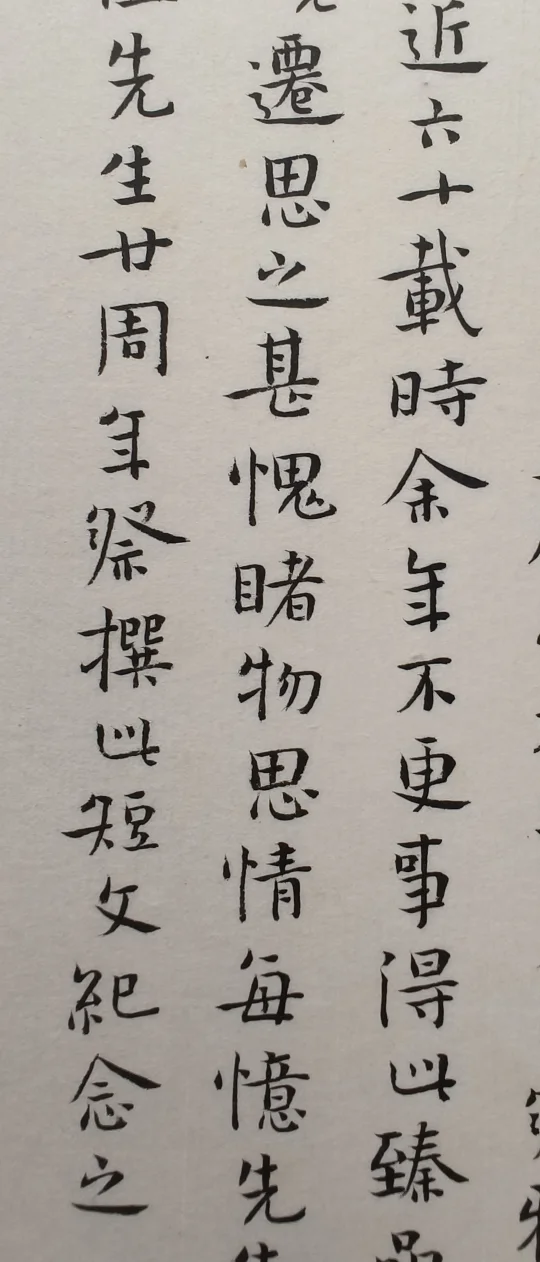 近六十載時余年不更事得此臻品
遷思之甚愧睹物思情每憶先生
先生廿周年祭撰此短文紀念之